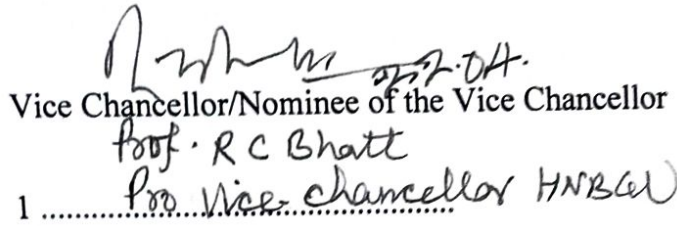 22.04.
Vice Chancellor/Nominee of the Vice Chancellor
Prof. R C Bhatt
1 ............................................ Pro Vice-Chancellor HNBGU